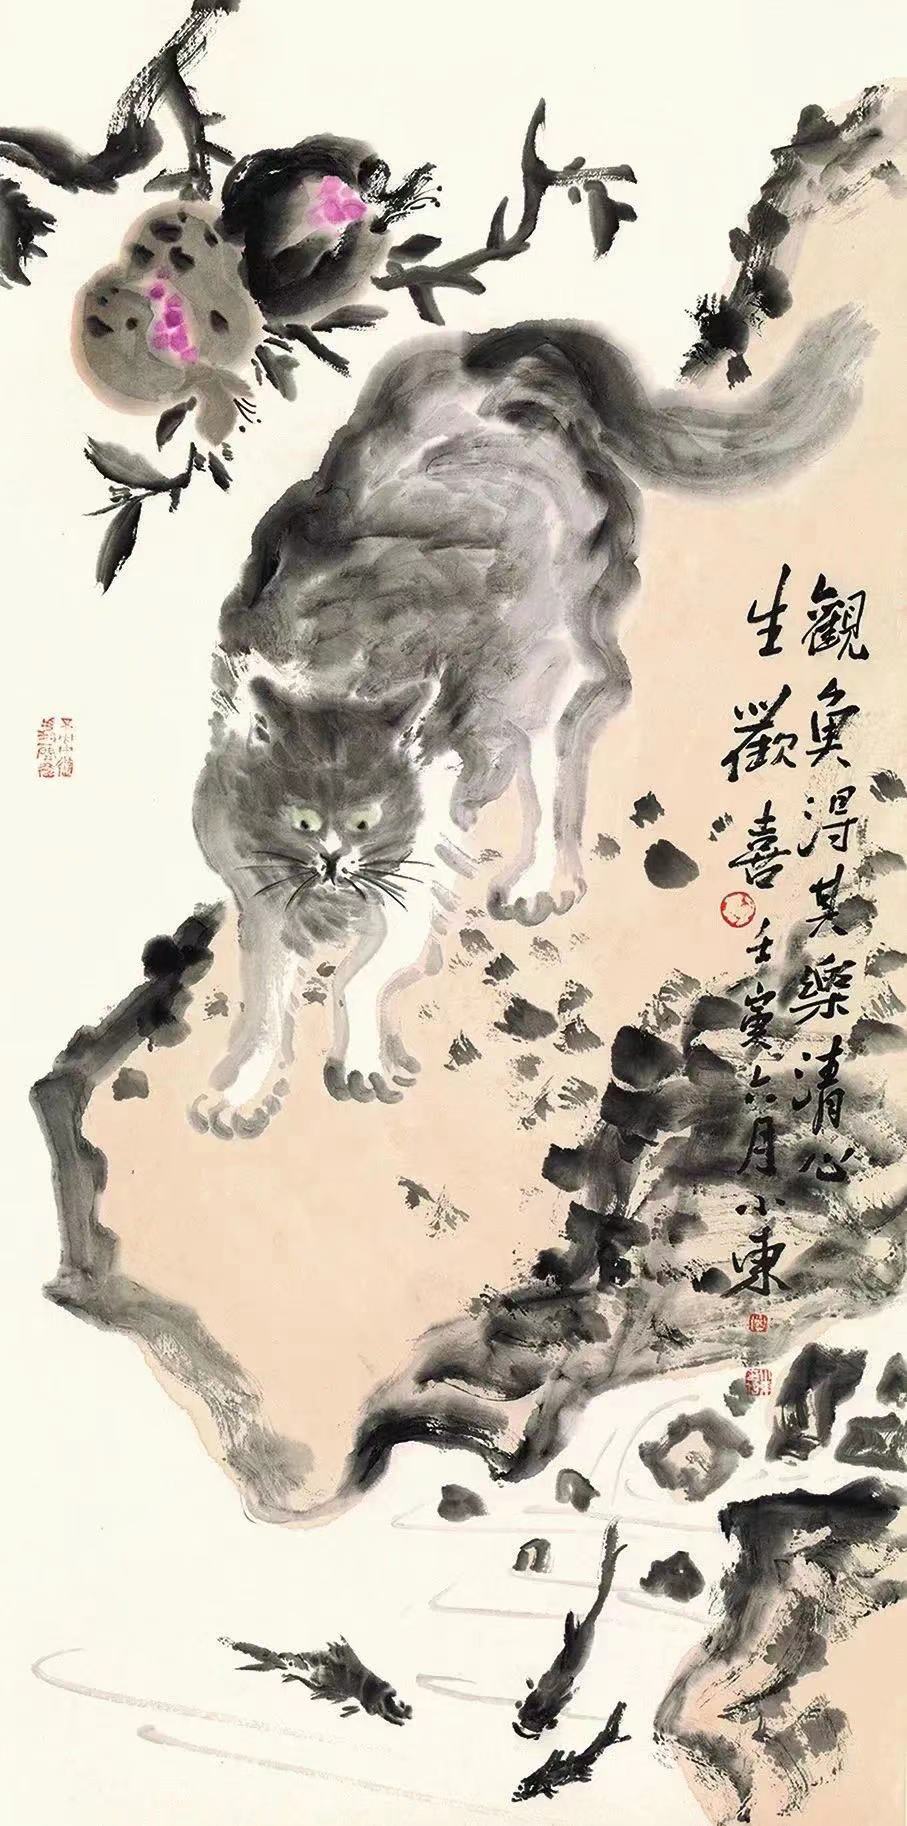 觀魚得其樂清心
生歡喜 壬寅六月小東